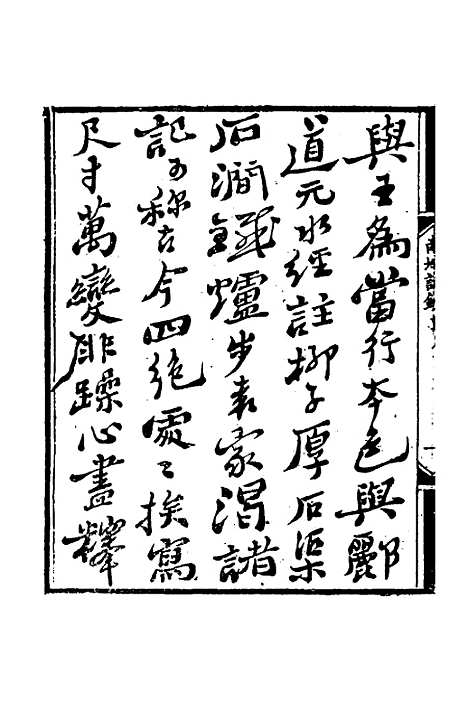 與王為當行本色與酈
道元水經註柳子厚石渠
石澗鐵爐步袁家渴諸
記可稱古今四絕處〻挨寫
尺寸萬變非躁心盡釋